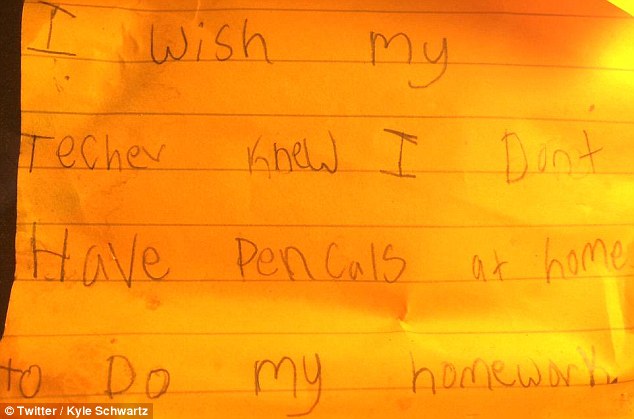 I wish my
Techer knew I Dont
Have Pencals at home
to Do my homework.
© Twitter / Kyle Schwartz